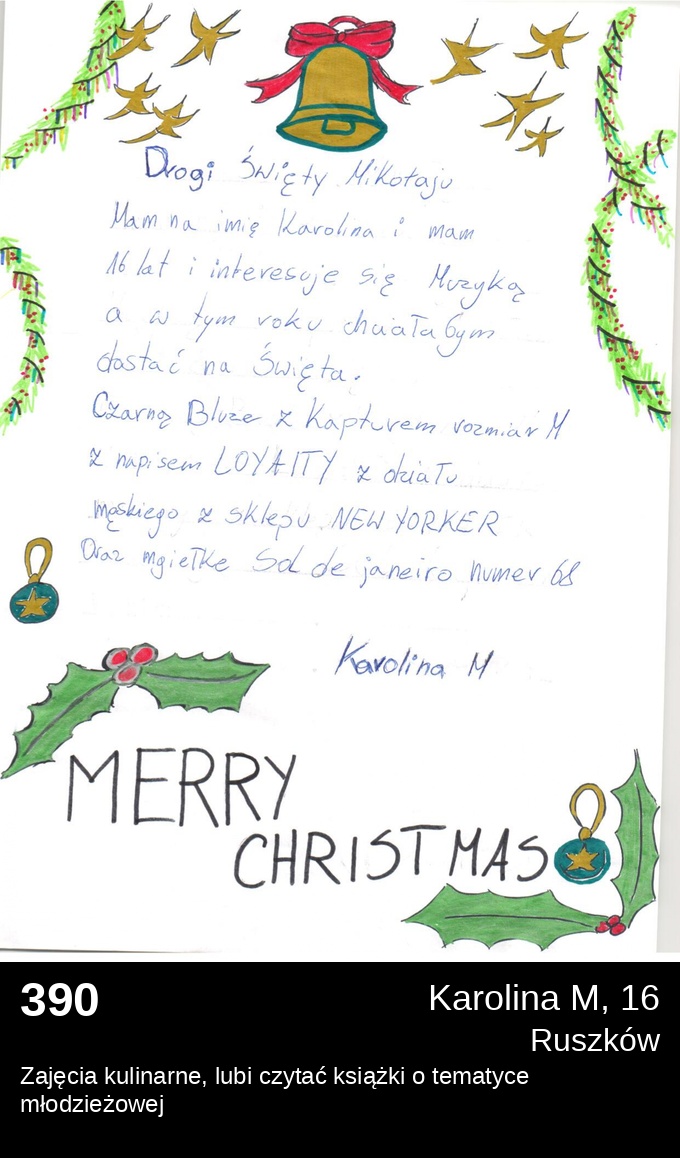 Drogi Święty Mikołaju
Mam na imię Karolina i mam
16 lat i interesuje się Muzyką
a w tym roku chciała bym
dostać na Święta.
Czarną Bluze z Kapturem rozmiar M
z napisem LOYAlTY z działu
męskiego z sklepu NEW YORKER
Oraz mgiełke Sol de janeiro numer 68
Karolina M
MERRY
CHRISTMAS
390
Karolina M, 16
Ruszków
Zajęcia kulinarne, lubi czytać książki o tematyce
młodzieżowej